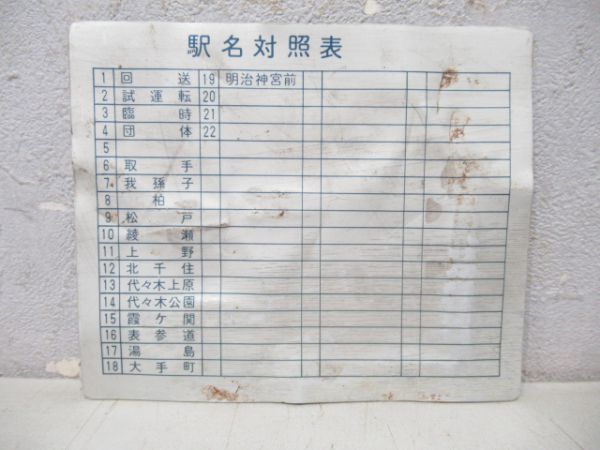 駅名対照表
1 回送 19 明治神宮前
2 試運転 20
3 臨時 21
4 団体 22
5
6 取手
7 我孫子
8 柏
9 松戸
10 綾瀬
11 上野
12 北千住
13 代々木上原
14 代々木公園
15 霞ケ関
16 表参道
17 湯島
18 大手町